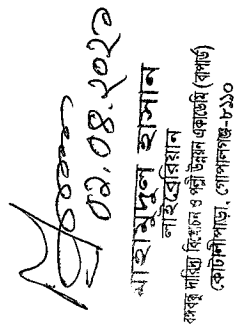 ০১.০৪.২০২১
মাহামুদুল হাসান
লাইব্রেরিয়ান
বঙ্গবন্ধু দারিদ্র্য বিমোচন ও পল্লী উন্নয়ন একাডেমি (বাপার্ড)
কোটালীপাড়া, গোপালগঞ্জ-৮১১০